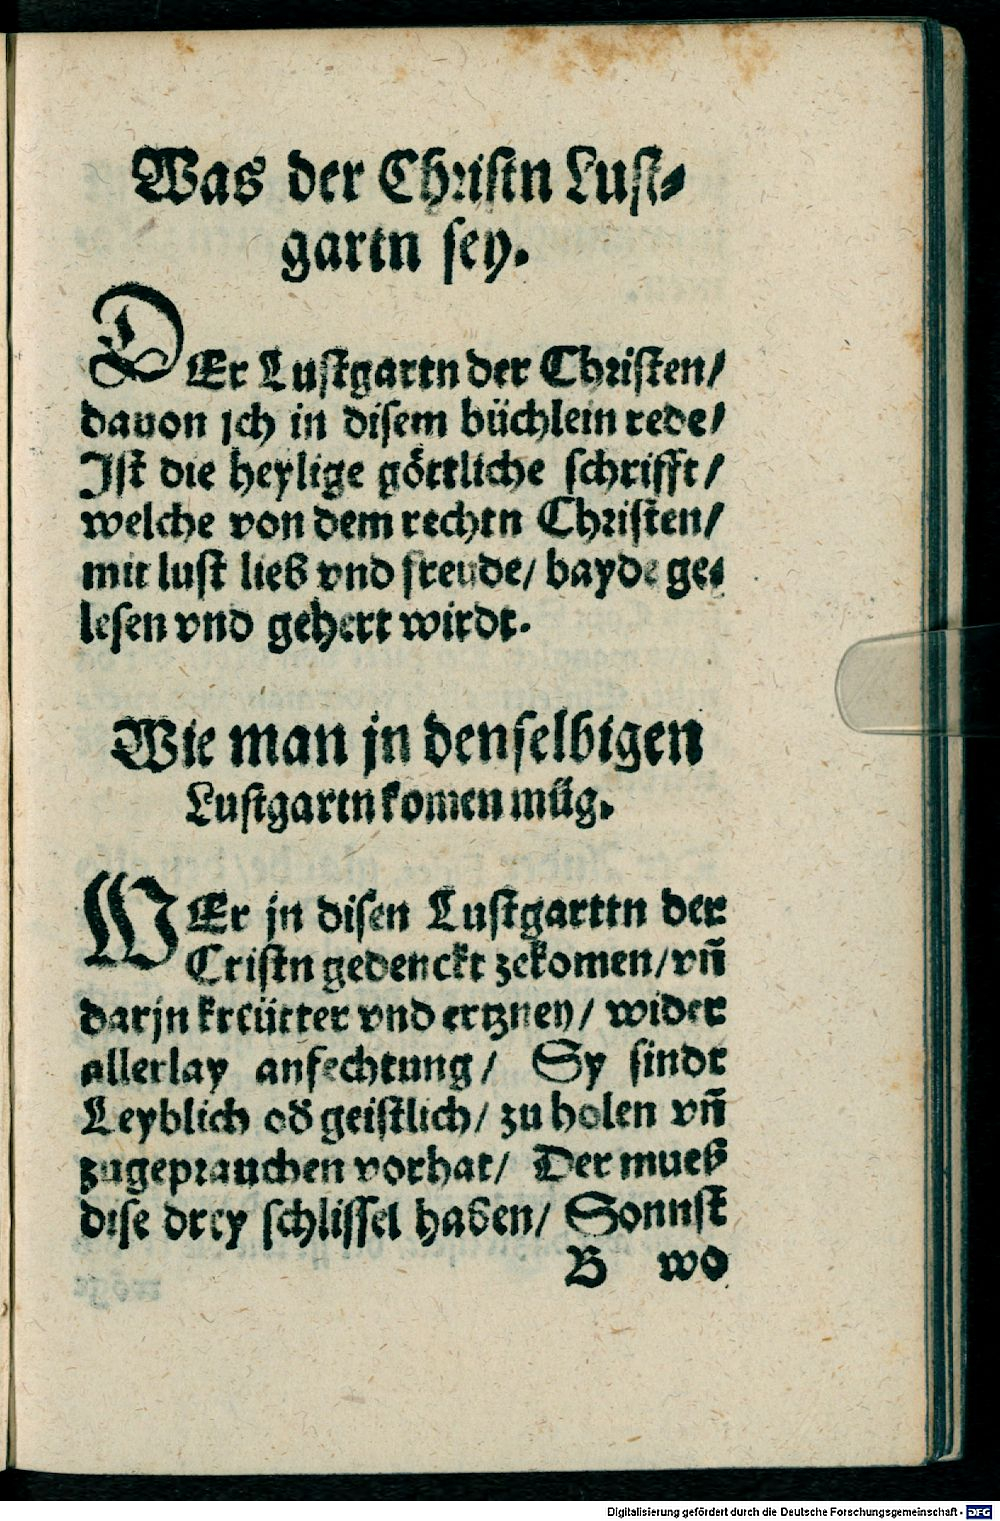 Was der Christn Lust⸗
gartn sey.
DEr Lustgartn der Christen/
dauon jch in disem büchlein rede/
Jst die heylige göttliche schrifft/
welche von dem rechtn Christen/
mit lust lieb vnd freude/ bayde ge⸗
lesen vnd gehert wirdt.
Wie man jn denselbigen
Lustgartn komen müg.
WEr jn disen Lustgarttn der
Cristn gedenckt zekomen/ vñ
darjn kreütter vnd ertzney/ wider
allerlay anfechtung/ Sy sindt
Leyblich od̄ geistlich/ zu holen vñ
zugeprauchen vorhat/ Der mueß
dise drey schlissel haben/ Sonnst
B wo
Digitalisierung gefördert durch die Deutsche Forschungsgemeinschaft - DFG